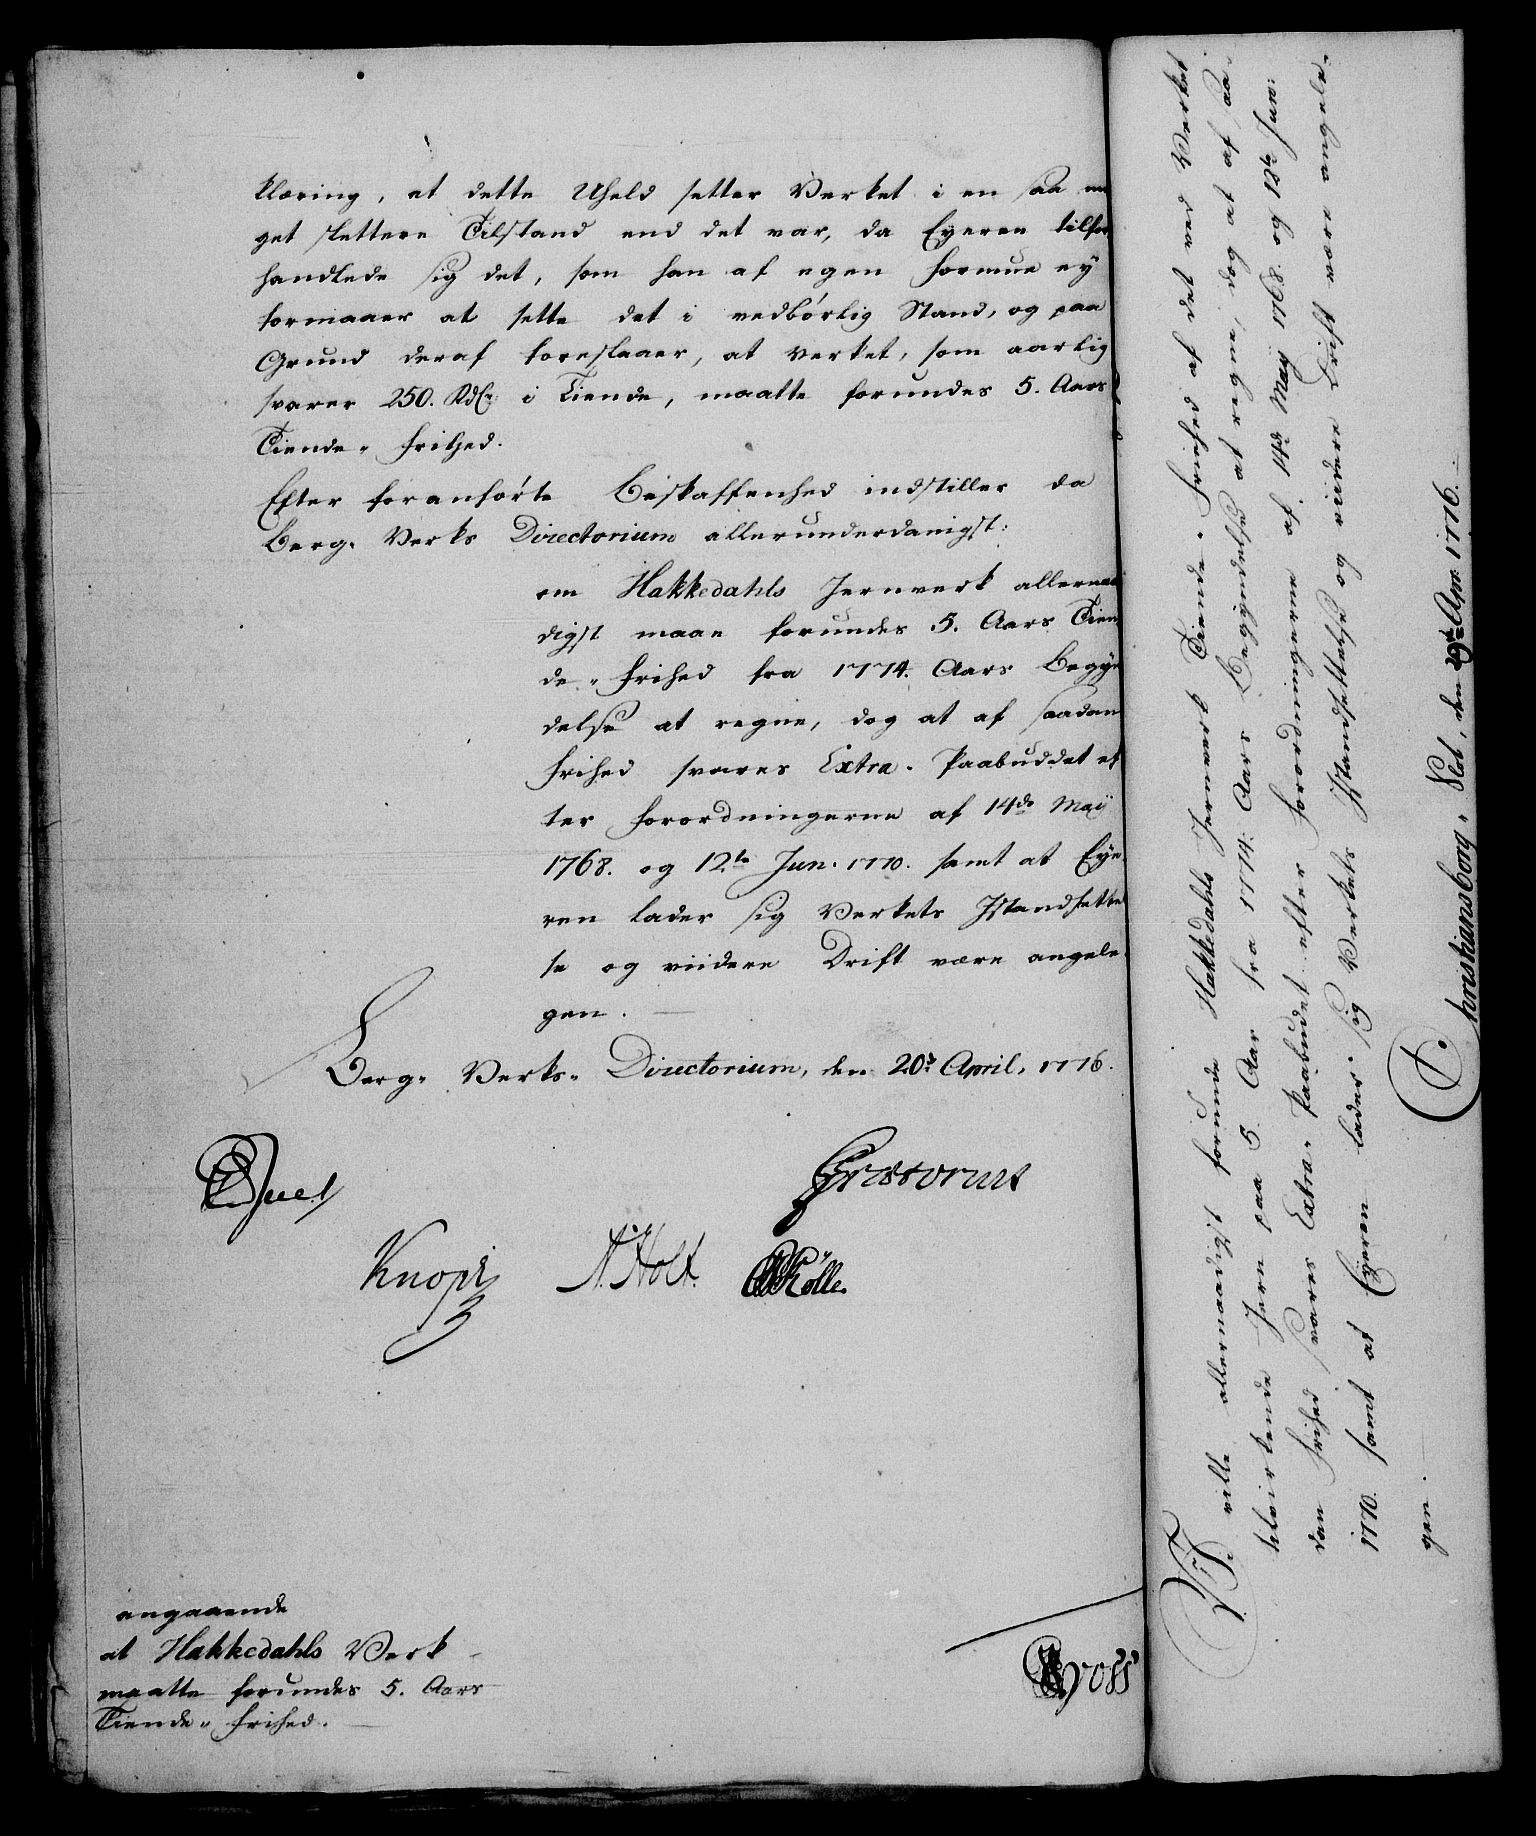 klæring, at dette Uheld setter Verket i en saa me
get slettere Tilstand end det var, da Eyeren tilfor
handlede sig det, som han af egen Formue ey
formaaer at sette det i vedbørlig Stand, og paa
Grund deraf foreslaaer, at Verket, som aarlig
svarer 250. Rdlr i Tiende, maatte forundes 5. Aars
Tiende-Frihed.
Efter foranførte Beskaffenhed indstiller da
Berg-Verks Directorium allerunderdanigst:
om Hakkedahls Jernverk allernaa
digst maae forundes 5. Aars Tien
de-Frihed fra 1774. Aars Begyn
delse at regne, dog at af saadan
Frihed svares Extra-Paabuddet ef
ter Forordningerne af 14de Maij
1768. og 12te Jun. 1770. samt at Eye
ren lader sig Verkets Istandsettel
se og viidere Drift være angele
gen.
Berg-Verks-Directorium, den 20de April, 1776.
Juel
Prætorius
Knoph N. Holt Kølle
angaaende
at Hakkedahls Verk
maatte forundes 5. Aars
Tiende-Frihed.
Vi ville allernaadigst forunde Hakkedahls Jernverk Tiende-Friehed af det ved Verket
tilvirkende Jern paa 5 Aar fra 1774. Aars Begyndelse at regne, dog at af saa-
dan Frihed svares Extra-Paabudet efter Forordningerne af 14de May 1768. og 12te Jun:
1770. samt at Eyeren lader sig Verkets Istandsettelse og viidere Drift være angele-
gen.
Christiansborg-Slot, den 29de Apr. 1776.